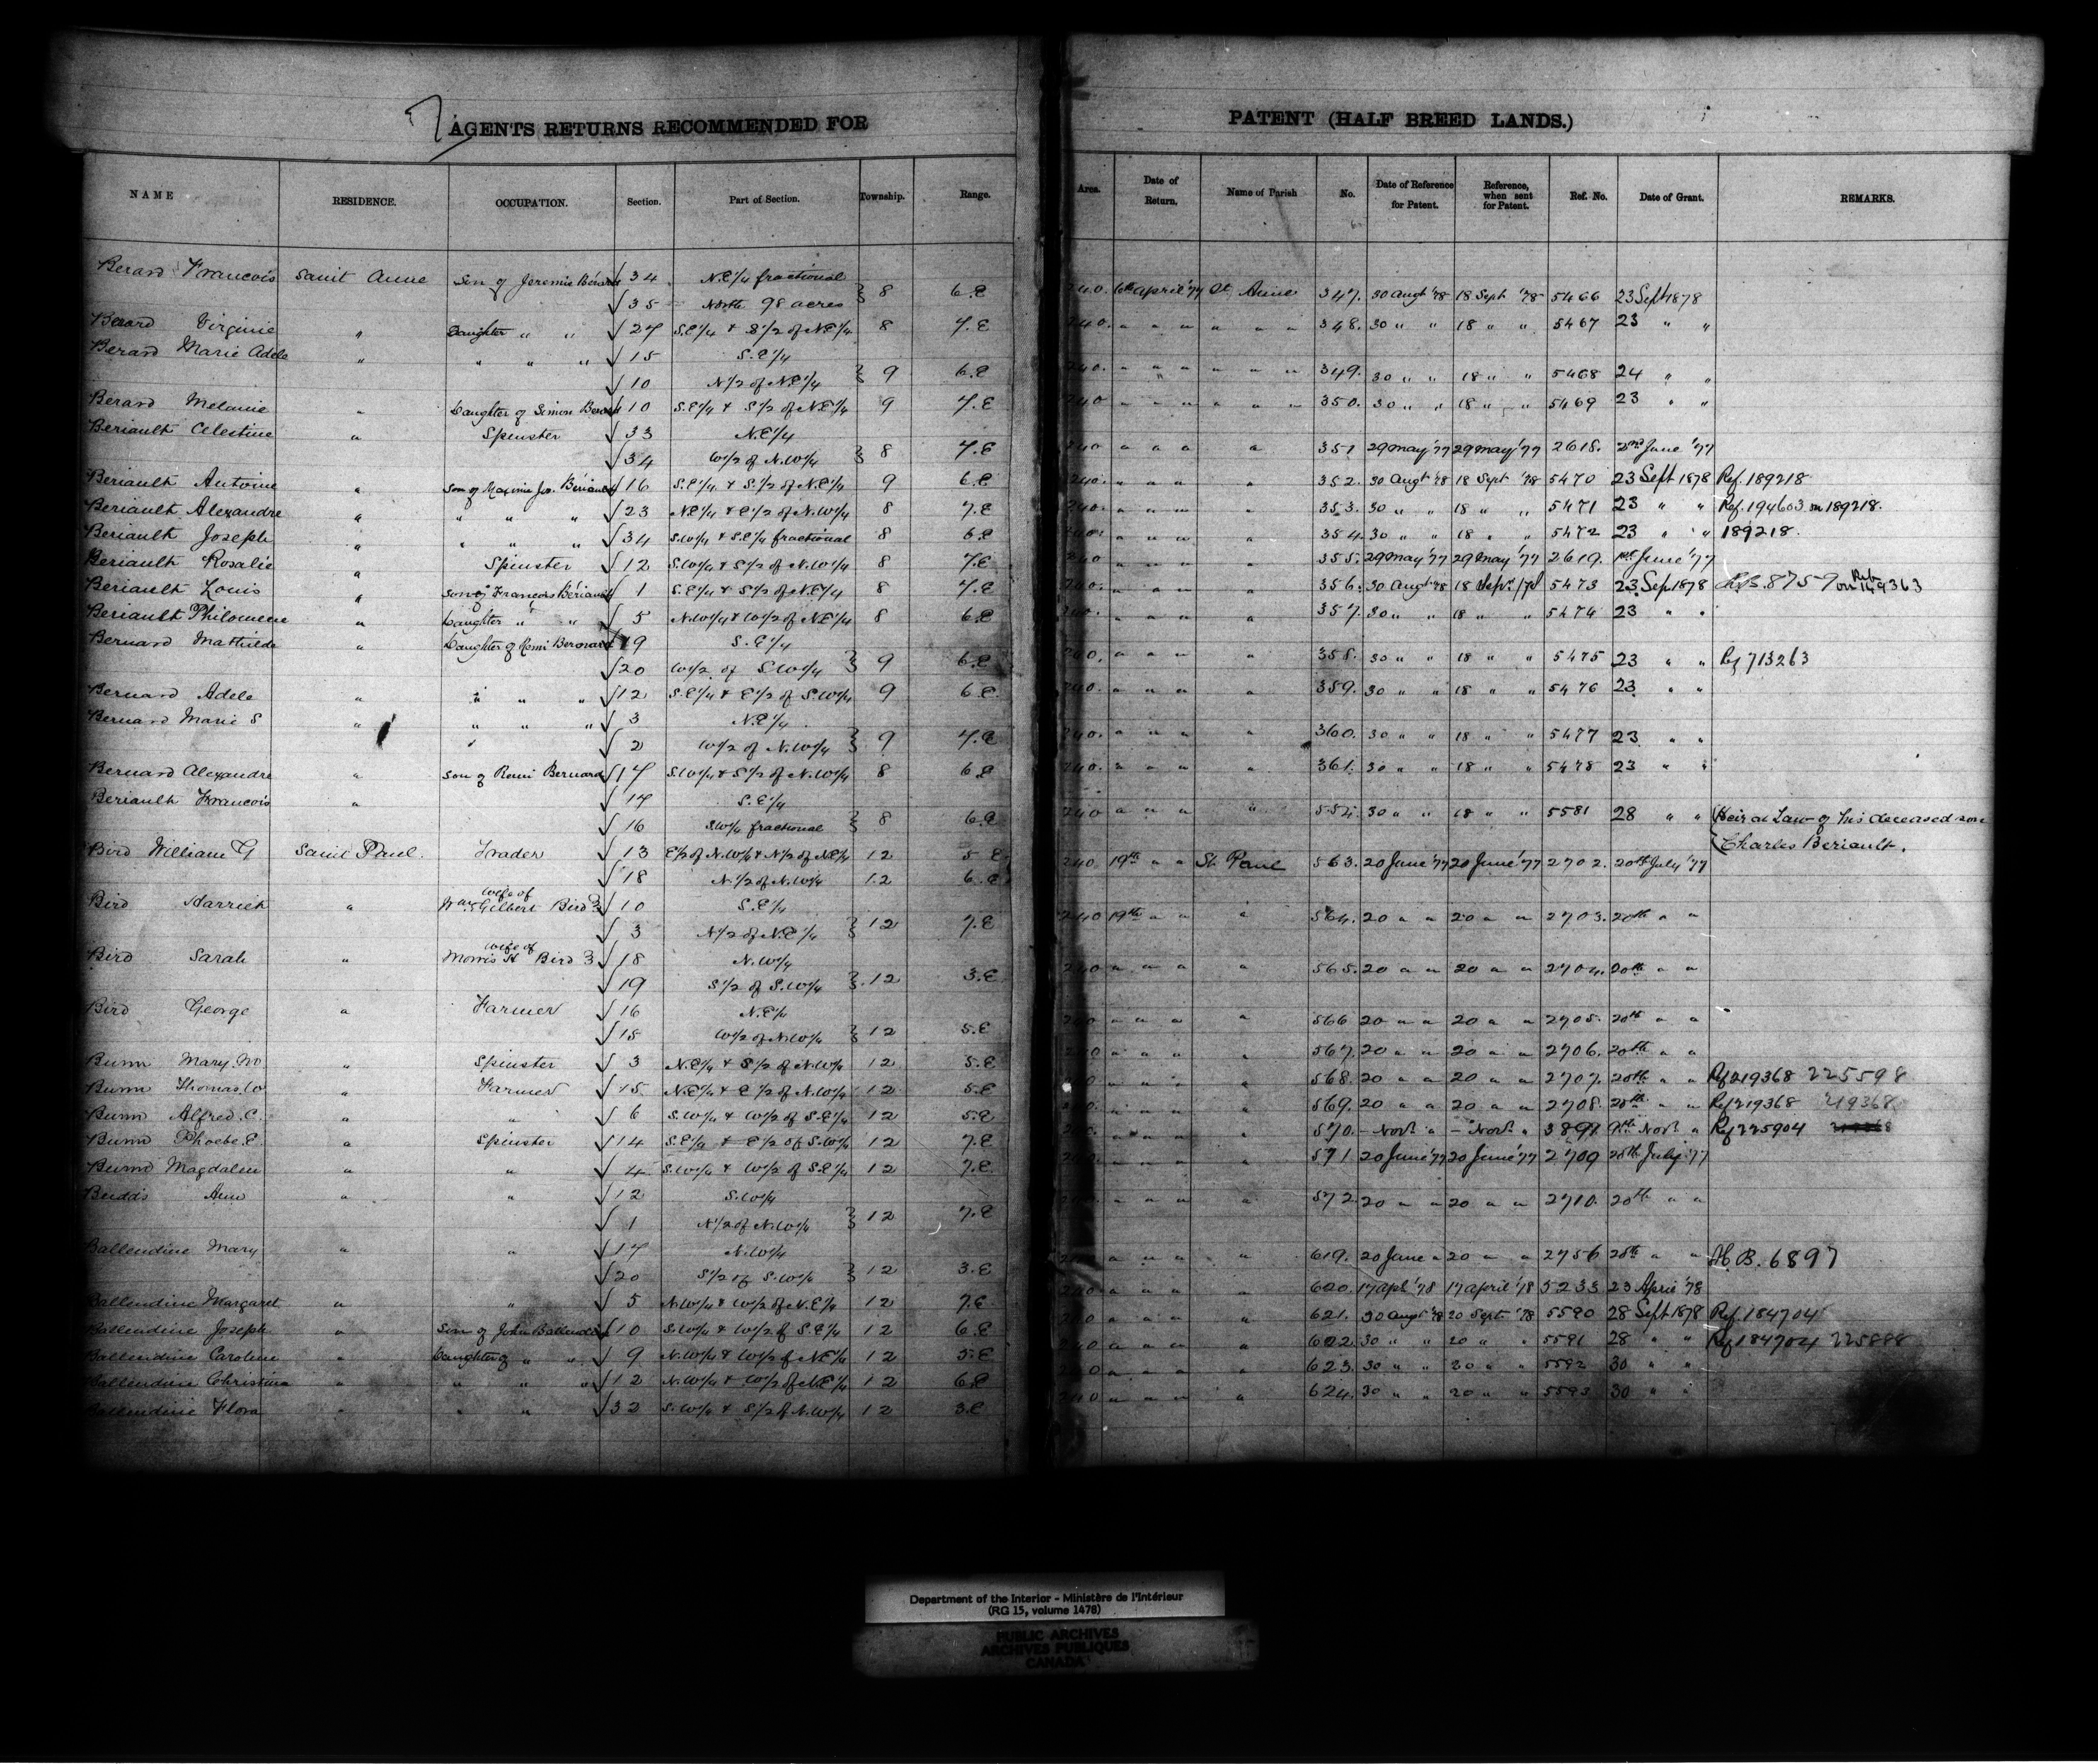 7
AGENTS RETURNS RECOMMENDED FOR
NAME RESIDENCE. OCCUPATION. Section. Part of Section. Township. Range.
Berard Francois Saint Anne Son of Jeremie Bérard √ 34 N.E1/4 fractional
√ 35 North 98 acres } 8 6.E
Berard Virginie " Daughter " " √ 27 S.E1/4 & S1/2 of N.E1/4 8 7.E
Berard Marie Adele " " " " √ 15 S.E1/4
√ 10 N1/2 of N.E1/4 } 9 6.E
Berard Melanie " Daughter of Simon Berard √ 10 S.E1/4 & S1/2 of N.E1/4 9 7.E
Beriault Celestine " Spinster √ 33 N.E1/4
√ 34 W1/2 of N.W1/4 } 8 7.E
Beriault Antoine " Son of Maxime Jos. Bériault √ 16 S.E1/4 & S.1/2 of N.E1/4 9 6.E
Beriault Alexandre " " " " √ 23 N.E1/4 & E1/2 of N.W1/4 8 7.E
Beriault Joseph " " " " √ 34 S.W1/4 & S.E1/4 fractional 8 6.E
Beriault Rosalie " Spinster √ 12 S.W1/4 & S1/2 of N.W1/4 8 7.E
Beriault Louis " Son of Francois Bériault √ 1 S.E1/4 & S1/2 of N.E1/4 8 7.E
Beriault Philomene " Daughter " " √ 5 N.W1/4 & W1/2 of N.E1/4 8 6.E
Bernard Mathilde " Daughter of Remi Bernard √ 19 S.E1/4
√ 20 W1/2 of S.W1/4 } 9 6.E
Bernard Adele " " " " √ 12 S.E1/4 & E1/2 of S.W1/4 9 6.E
Bernard Marie S " " " " √ 3 N.E1/4
√ 2 W1/2 of N.W1/4 } 9 7.E
Bernard Alexandre " Son of Remi Bernard √ 17 S.W1/4 & S1/2 of N.W1/4 8 6.E
Beriault Francois " √ 17 S.E1/4
√ 16 S.W1/4 fractional } 8 6.E
Bird William G Saint Paul. Trader √ 13 E1/2 of N.W1/4 & N1/2 of N.E1/4 12 5 E
√ 18 N.1/2 of N.W1/4 12 6.E
Bird Harriet " wife of Wm. Gilbert Bird } √ 10 S.E1/4
√ 3 N1/2 of N.E1/4 } 12 7.E
Bird Sarah " wife of Morris H Bird } √ 18 N.W1/4
√ 19 S1/2 of S.W1/4 } 12 3.E
Bird George " Farmer √ 16 N.E1/4
√ 15 W1/2 of N.W1/4 } 12 5.E
Bunn Mary. M " Spinster √ 3 N.E1/4 & E1/2 of N.W1/4 12 5.E
Bunn Thomas. W " Farmer √ 15 N.E1/4 & E1/2 of N.W1/4 12 5.E
Bunn Alfred. C. " " √ 6 S.W1/4 & W1/2 of S.E1/4 12 5.E
Bunn Phoebe. E " Spinster √ 14 S.E1/4 & E1/2 of S.W1/4 12 7.E
Bunn Magdalen " " √ 4 S.W1/4 & W1/2 of S.E1/4 12 7.E
Budds Ann " " √ 12 S.W1/4
√ 1 N1/2 of N.W1/4 } 12 7.E
Ballendine Mary " " √ 17 N.W1/4
√ 20 S1/2 of S.W1/4 } 12 3.E
Ballendine Margaret " " √ 5 N.W1/4 & W1/2 of N.E1/4 12 7.E
Ballendine Joseph " Son of John Ballendine √ 10 S.W1/4 & W1/2 of S.E1/4 12 6.E
Ballendine Caroline " Daughter of " " √ 9 N.W1/4 & W1/2 of N.E1/4 12 5.E
Ballendine Christina " " " " √ 12 N.W1/4 & W1/2 of N.E1/4 12 6.E
Ballendine Flora " " " √ 32 S.W1/4 & S1/2 of N.W1/4 12 3.E
PATENT (HALF BREED LANDS.)
Area. Date of Return. Name of Parish No. Date of Reference for Patent. Reference, when sent for Patent. Ref. No. Date of Grant. REMARKS.
240. 6th April '77 St. Anne 347. 30 Augt '78 18 Sept '78 5466 23 Sept 1878
240. " " " " " " 348. 30 " " 18 " " 5467 23 " "
240. " " " " " " 349. 30 " " 18 " " 5468 24 " "
240 " " " " " " 350. 30 " " 18 " " 5469 23 " "
240 " " " " 351 29 May '77 29 May '77 2618. 2nd June '77
240. " " " " 352. 30 Augt '78 18 Sept '78 5470 23 Sept 1878 Ref. 189218.
240. " " " " 353. 30 " " 18 " " 5471 23 " " Ref. 194603 on 189218.
240. " " " " 354. 30 " " 18 " " 5472 23 " " 189218.
240 " " " " 355. 29 May '77 29 May '77 2619. 1st June '77
240. " " " " 356. 30 Augt '78 18 Sept /78 5473 23 Sep 1878 H.B. 8759 on Reb. 149363
240. " " " " 357. 30 " " 18 " " 5474 23 " "
240. " " " " 358. 30 " " 18 " " 5475 23 " " Ref 713263
240. " " " " 359. 30 " " 18 " " 5476 23 " "
240. " " " " 360. 30 " " 18 " " 5477 23 " "
240. " " " " 361. 30 " " 18 " " 5478 23 " "
240 " " " " 554. 30 " " 18 " " 5581 28 " " (Heir at Law of his deceased son
(Charles Beriault.
240 19th " " St. Paul 563. 20 June '77 20 June '77 2702. 20th July '77
240 19th " " " 564. 20 " " 20 " " 2703. 20th " "
240 " " " " 565. 20 " " 20 " " 2704. 20th " "
240 " " " " 566 20 " " 20 " " 2705. 20th " "
240 " " " " 567. 20 " " 20 " " 2706. 20th " "
" " " " 568. 20 " " 20 " " 2707. 20th " " Ref 219368 225598
" " " " 569. 20 " " 20 " " 2708. 20th " " Ref 219368 219368
" " " " 570. - Novr " - Novr " 3891 9th Novr " Ref 225904
240. " " " " 571 20 June '77 20 June '77 2709 20th July '77
" " " " 572. 20 " " 20 " " 2710. 20th " "
240 " " " " 619. 20 June " 20 " " 2756 20th " " H.B. 6897
240 " " " " 620. 17 Apl '78 17 April '78 5233 23 April '78
240 " " " " 621. 30 Augt '78 20 Sept. '78 5590 28 Sept 1878 Ref. 184704
240 " " " " 622. 30 " " 20 " " 5591 28 " " Ref 184704 225888
240 " " " " 623. 30 " " 20 " " 5592 30 " "
240 " " " " 624. 30 " " 20 " " 5593 30 " "
Department of the Interior - Ministère de l'Intérieur
(RG 15, volume 1478)
PUBLIC ARCHIVES
ARCHIVES PUBLIQUES
CANADA